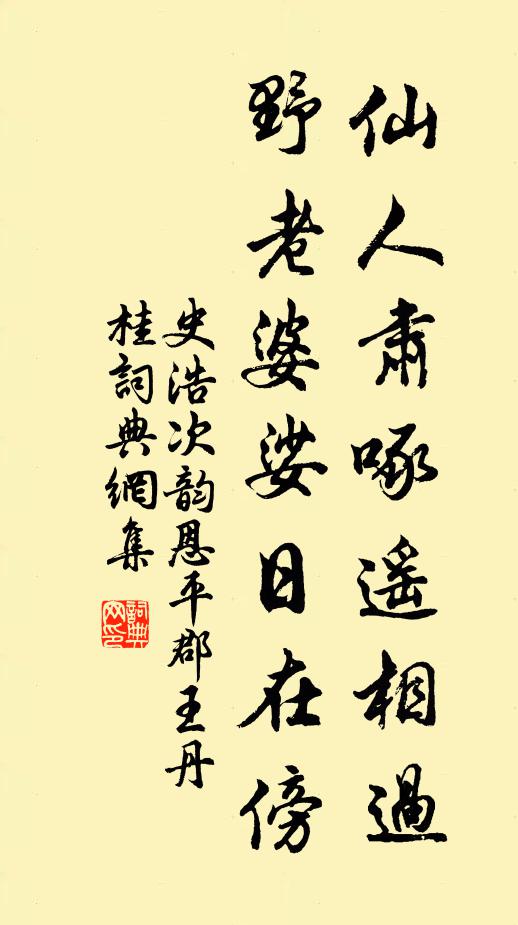 仙人肅啄遥相過
野老婆娑日在傍
史浩次韵恩平郡王丹
桂詞典網集
詞典网印